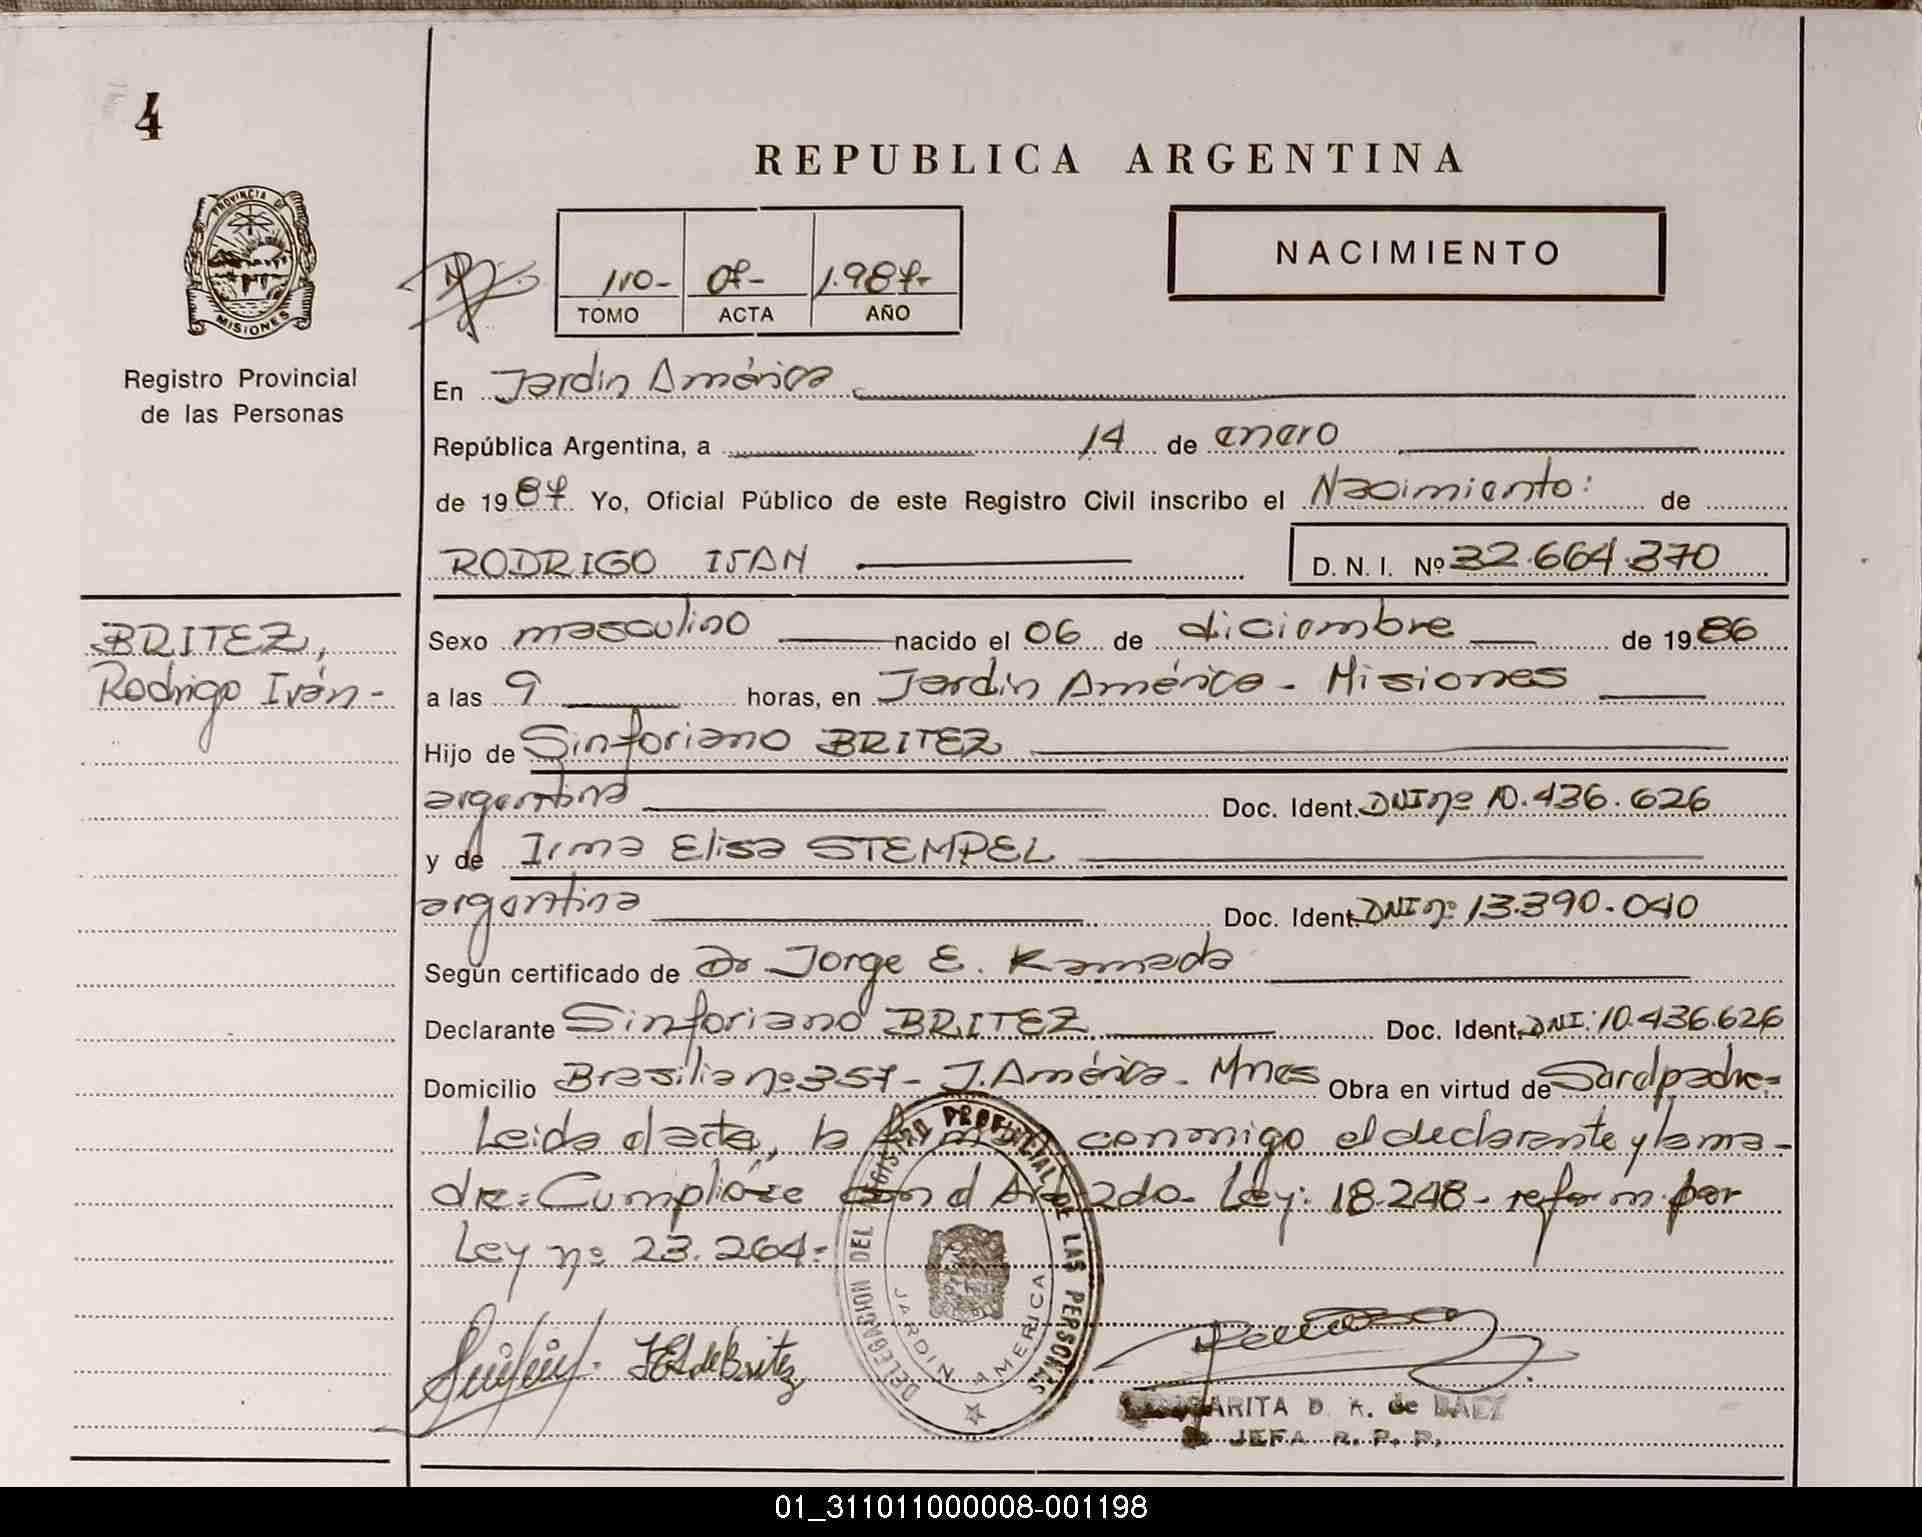 4
REPUBLICA ARGENTINA
PROVINCIA DE
MISIONES
Registro Provincial
de las Personas
110- 07- 1.987-
TOMO ACTA AÑO
NACIMIENTO
En Jardín América
República Argentina, a 14 de enero
de 1987 Yo, Oficial Público de este Registro Civil inscribo el Nacimiento: de
RODRIGO IVAN D. N. I. Nº 32.664.370
BRITEZ,
Rodrigo Iván-
Sexo masculino nacido el 06 de diciembre de 1986
a las 9 horas, en Jardín América - Misiones
Hijo de Sinforiano BRITEZ
argentina Doc. Ident. DNI nº 10.436.626
y de Irma Elisa STEMPEL
argentina Doc. Ident. DNI nº 13.390.040
Según certificado de Dr Jorge E. Kamada
Declarante Sinforiano BRITEZ Doc. Ident. DNI: 10.436.626
Domicilio Brasilia nº 357- J. América - Mnes Obra en virtud de Ser el padre=
Leída el acta, la firman conmigo el declarante y la ma-
dre= Cumplióse con el Art 2do- Ley: 18.248- reform. por
Ley nº 23.264=
DELEGACION DEL REGISTRO PROVINCIAL DE LAS PERSONAS
JARDIN AMERICA
IES de Britez
MARGARITA D. K. de BAEZ
JEFA R. P. P.
01_311011000008-001198